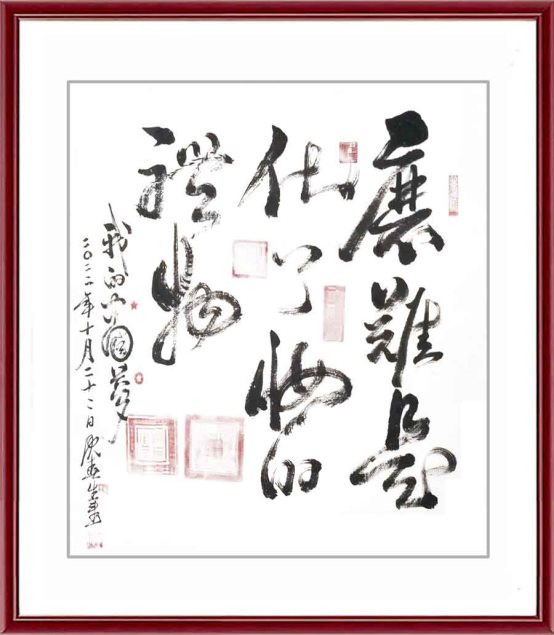 磨難是
化了妝的
禮物
我的中國夢
二〇二二年十月二十二日